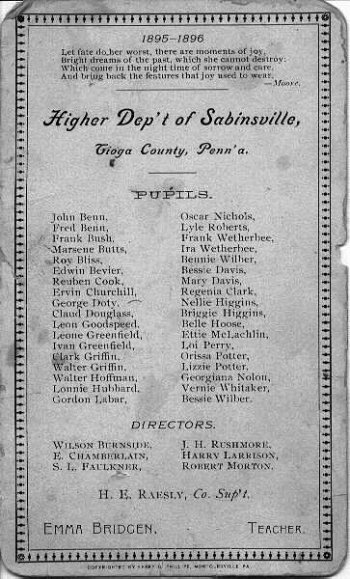 1895-1896
Let fate do her worst, there are moments of joy,
Bright dreams of the past, which she cannot destroy;
Which come in the night time of sorrow and care,
And bring back the features that joy used to wear.
—Moore.
Higher Dep't of Sabinsville,
Tioga County, Penn'a.
PUPILS.
John Benn, Oscar Nichols,
Fred Benn, Lyle Roberts,
Frank Bush, Frank Wetherbee,
Marsene Butts, Ira Wetherbee,
Roy Bliss, Bennie Wilber,
Edwin Bevier, Bessie Davis,
Reuben Cook, Mary Davis,
Ervin Churchill, Regenia Clark,
George Doty, Nellie Higgins,
Claud Douglass, Briggie Higgins,
Leon Goodspeed, Belle Hoose,
Leone Greenfield, Ettie McLachlin,
Ivan Greenfield, Loi Perry,
Clark Griffin, Orissa Potter,
Walter Griffin, Lizzie Potter,
Walter Hoffman, Georgiana Nolon,
Lonnie Hubbard, Vernie Whitaker,
Gordon Labar, Bessie Wilber.
DIRECTORS.
WILSON BURNSIDE, J. H. RUSHMORE,
E. CHAMBERLAIN, HARRY LARRISON,
S. L. FAULKNER, ROBERT MORTON.
H. E. RAESLY, Co. Sup't.
EMMA BRIDGEN, TEACHER.
COPYRIGHTED BY HARRY O. PHILLIPS, MONTOURSVILLE, PA.